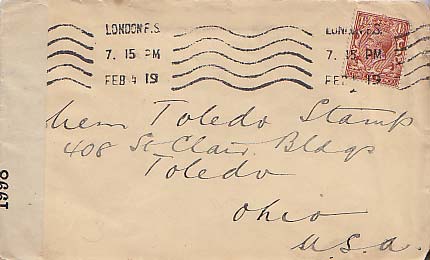 LONDON F.S.
7. 15 PM
FEB 4 19
LONDON F.S.
7. 15 PM
FEB 4 19
Toledo Stamp
408 St Clair Bldgs
Toledo
Ohio
U.S.A.
1998